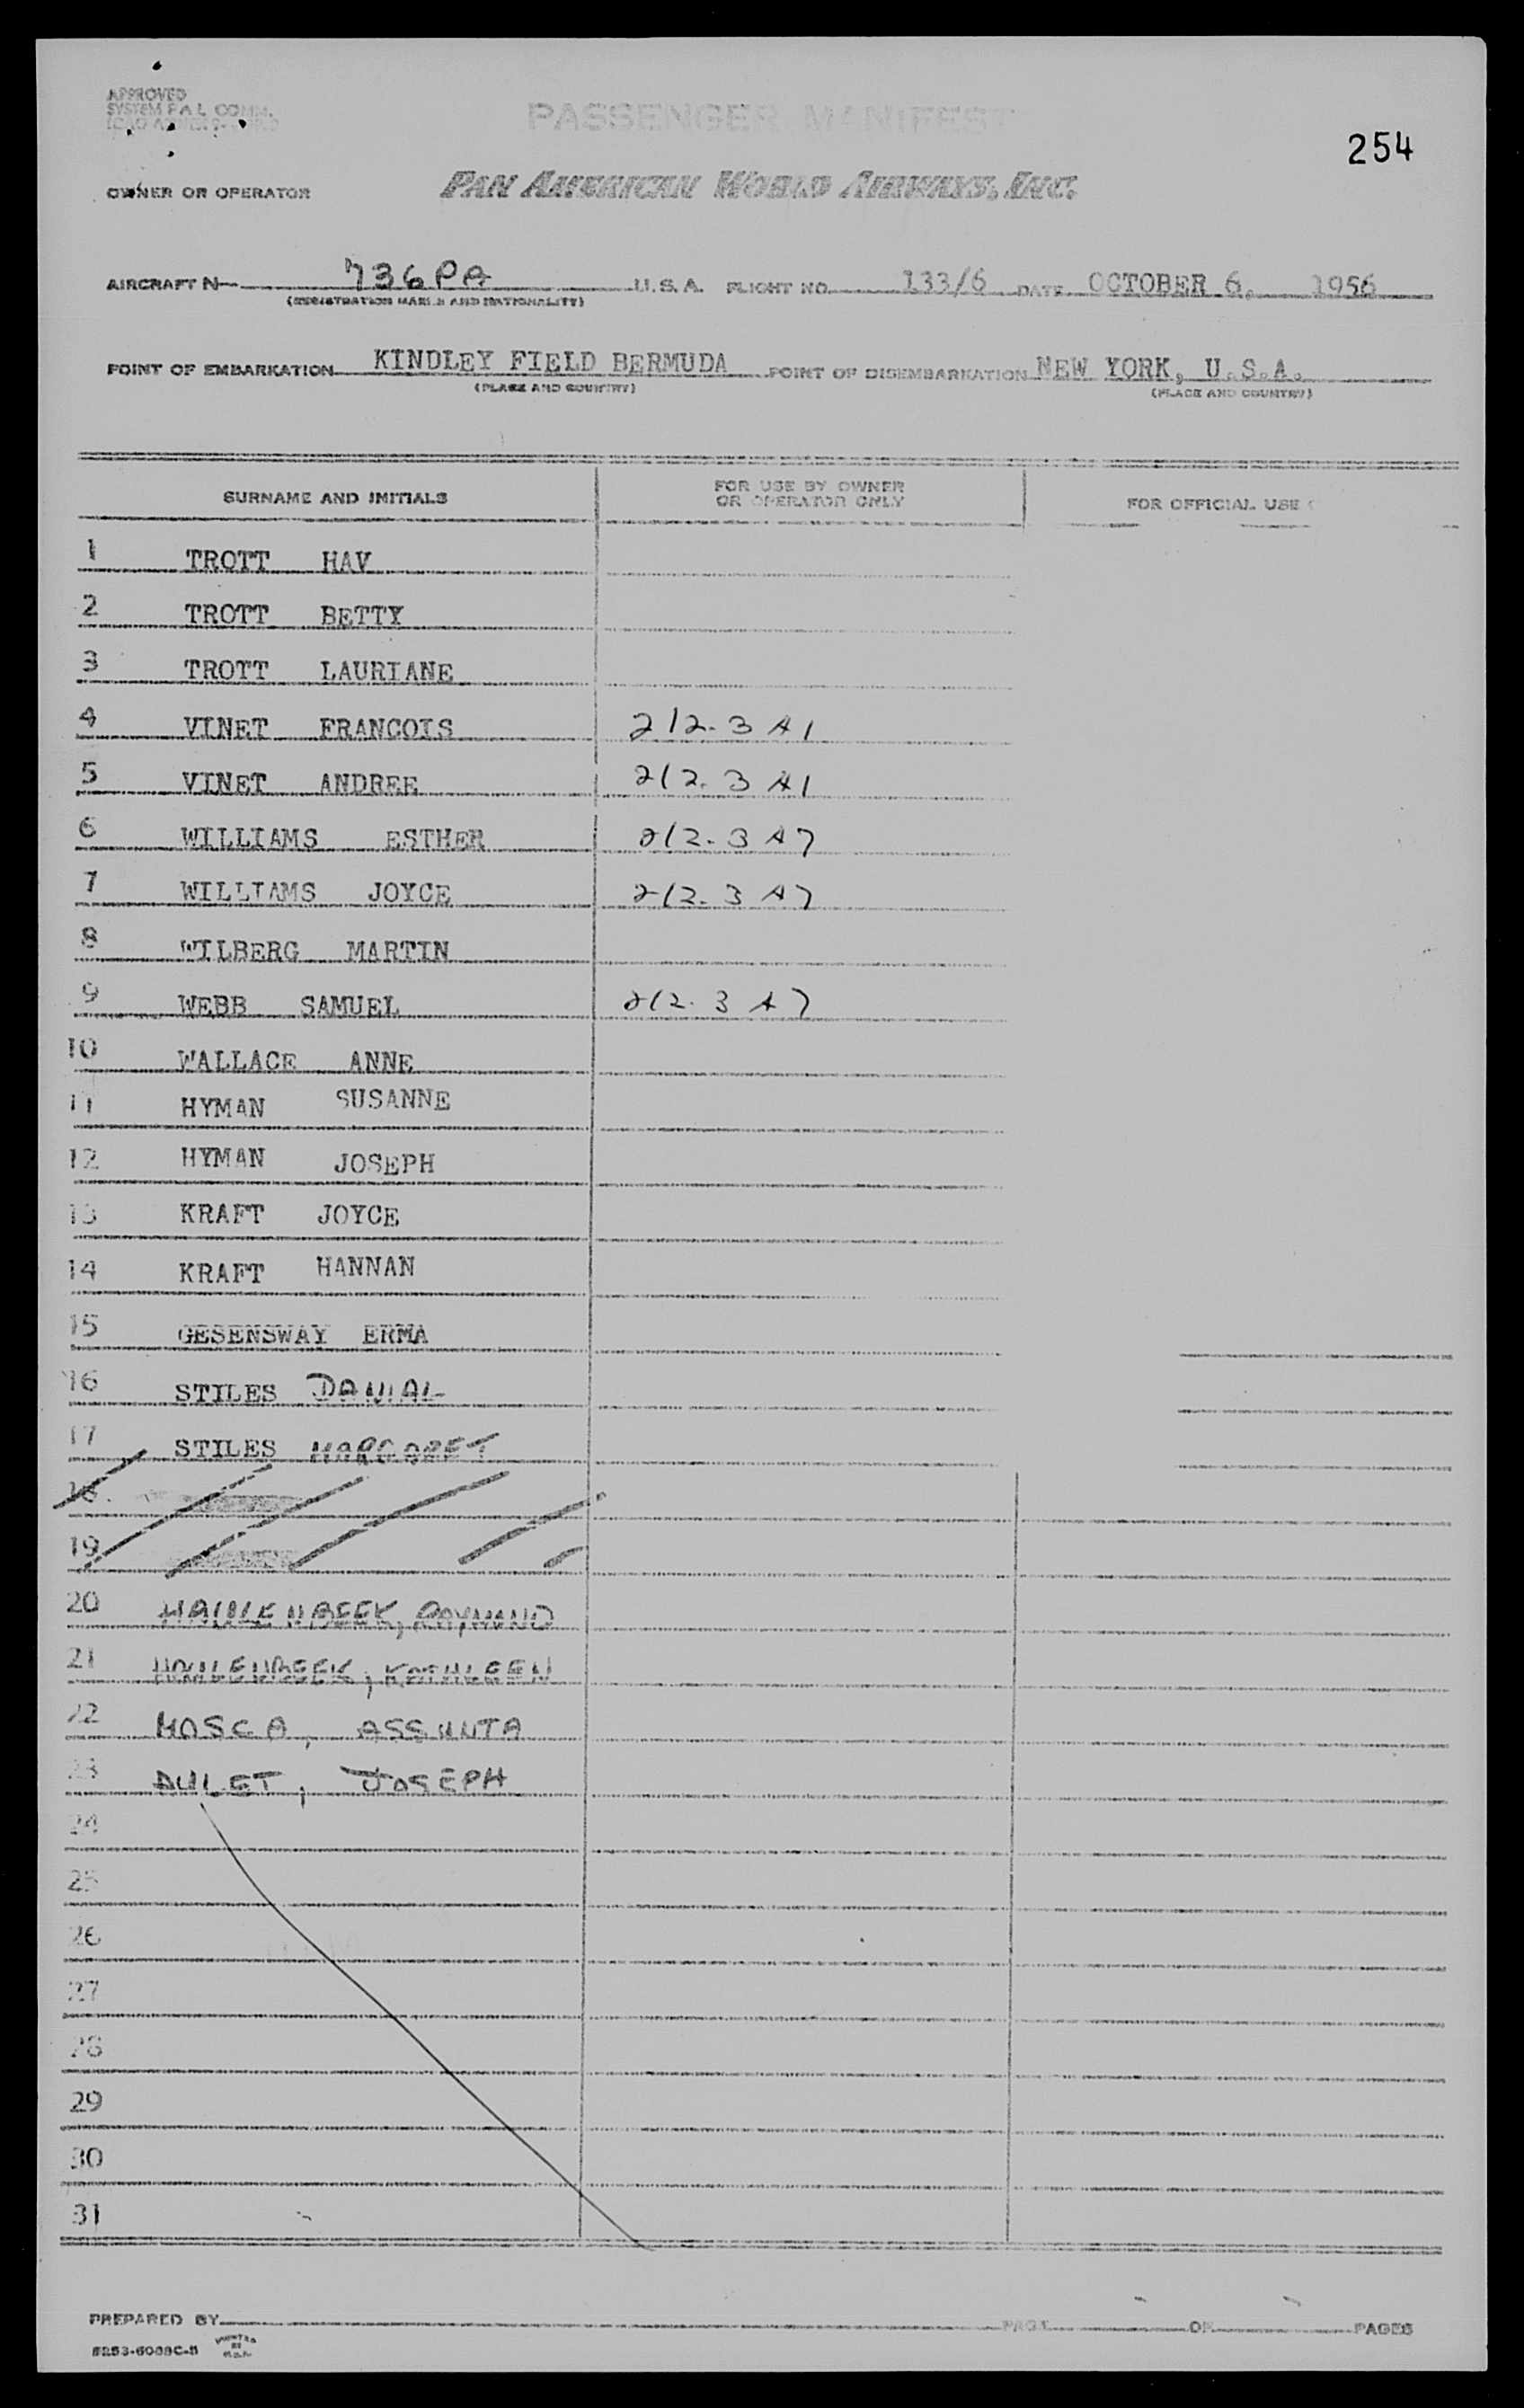 APPROVED
SYSTEM F A L COMM.
PASSENGER MANIFEST
254
OWNER OR OPERATOR PAN AMERICAN WORLD AIRWAYS, INC.
AIRCRAFT N 736PA U.S.A. FLIGHT NO. 133/6 DATE OCTOBER 6, 1956
(REGISTRATION MARKS AND NATIONALITY)
POINT OF EMBARKATION KINDLEY FIELD BERMUDA POINT OF DISEMBARKATION NEW YORK, U.S.A.
(PLACE AND COUNTRY) (PLACE AND COUNTRY)
SURNAME AND INITIALS FOR USE BY OWNER OR OPERATOR ONLY FOR OFFICIAL USE
1 TROTT HAV
2 TROTT BETTY
3 TROTT LAURIANE
4 VINET FRANCOIS 212.3 A1
5 VINET ANDREE 212.3 A1
6 WILLIAMS ESTHER 212.3 A7
7 WILLIAMS JOYCE 212.3 A7
8 WILBERG MARTIN
9 WEBB SAMUEL 212.3 A7
10 WALLACE ANNE
11 HYMAN SUSANNE
12 HYMAN JOSEPH
13 KRAFT JOYCE
14 KRAFT HANNAN
15 GESENSWAY ERMA
16 STILES DANIAL
17 STILES MARGARET
18
19
20 HAULENBEEK, RAYMOND
21 HAULENBEEK, KATHLEEN
22 MOSCA, ASSUNTA
23 DULET, JOSEPH
24
25
26
27
28
29
30
31
PREPARED BY PAGE OF PAGES